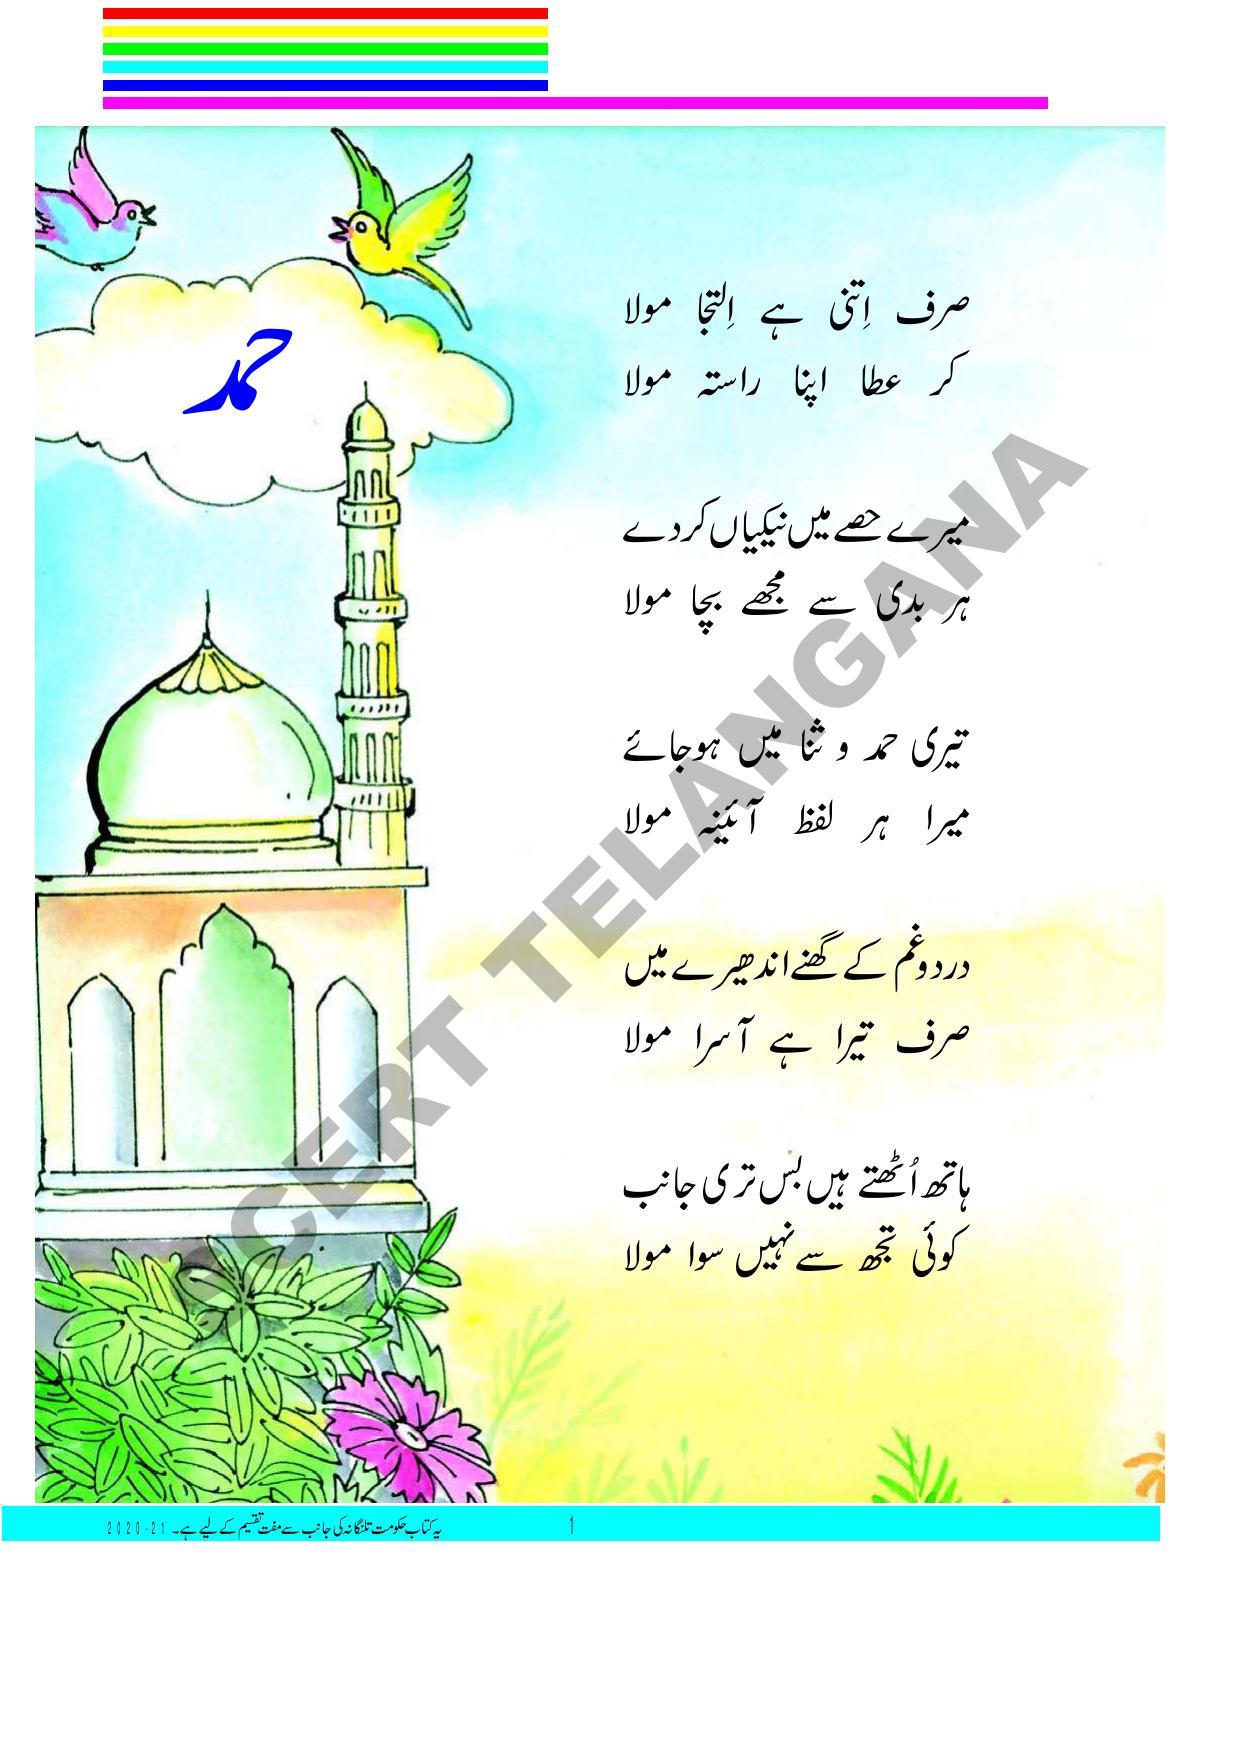 حمد
صرف اِتنی ہے اِلتجا مولا
کر عطا اپنا راستہ مولا
میرے حصے میں نیکیاں کردے
ہر بدی سے مجھے بچا مولا
تیری حمد و ثنا میں ہوجائے
میرا ہر لفظ آئینہ مولا
درد وغم کے گھنے اندھیرے میں
صرف تیرا ہے آسرا مولا
ہاتھ اُٹھتے ہیں بس تری جانب
کوئی تجھ سے نہیں سوا مولا
SCERT TELANGANA
یہ کتاب حکومت تلنگانہ کی جانب سے مفت تقسیم کے لیے ہے۔ 2020-21
1